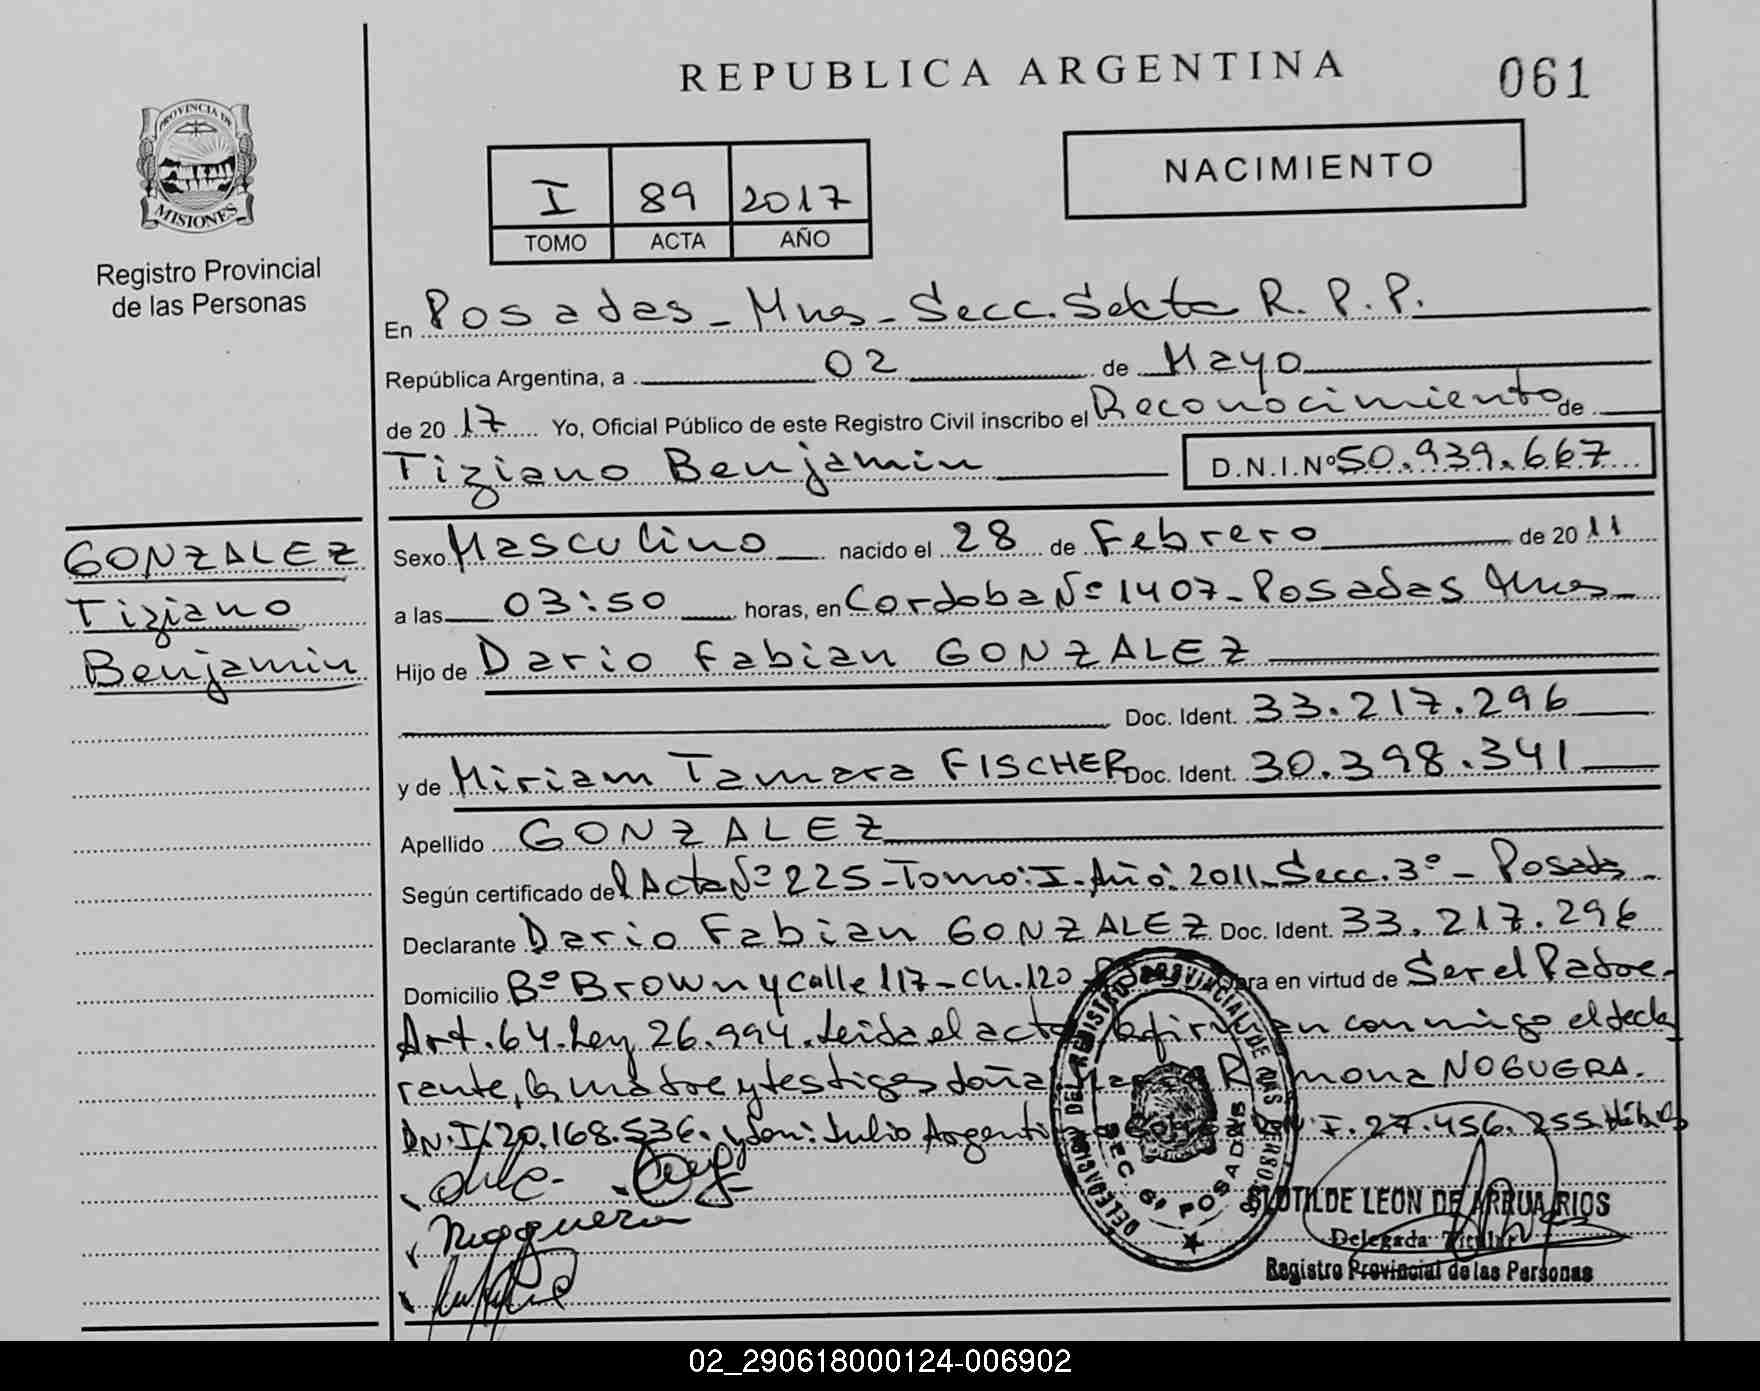 REPUBLICA ARGENTINA
061
PROVINCIA DE
MISIONES
Registro Provincial
de las Personas
NACIMIENTO
I 89 2017
TOMO ACTA AÑO
En Posadas - Mnes - Secc. Sexta R. P. P.
República Argentina, a 02 de Mayo
de 20 17 Yo, Oficial Público de este Registro Civil inscribo el Reconocimiento de
Tiziano Benjamin D.N.I.Nº 50.939.667
GONZALEZ
Tiziano
Benjamin
Sexo Masculino nacido el 28 de Febrero de 20 11
a las 03:50 horas, en Cordoba Nº 1407 - Posadas Mnes
Hijo de Dario Fabian GONZALEZ
Doc. Ident. 33.217.296
y de Miriam Tamara FISCHER Doc. Ident. 30.398.341
Apellido GONZALEZ
Según certificado del Acta Nº 225 - Tomo: I - Año: 2011 - Secc. 3º - Posadas
Declarante Dario Fabian GONZALEZ Doc. Ident. 33.217.296
Domicilio Bº Brown y Calle 117 - Ch. 120 en virtud de Ser el Padre.
Art. 64. Ley 26.994. Leida el acta la firman conmigo el decla
rante, la madre y testigos doña Ramona NOGUERA.
D.N.I. 20.168.536. y don: Julio Argentino 27.456.255.
Noguera
DELEGACION DEL REGISTRO PROVINCIAL DE LAS PERSONAS
SEC. 6ª POSADAS
CLOTILDE LEON DE ARRUA RIOS
Delegada Titular
Registro Provincial de las Personas
02_290618000124-006902